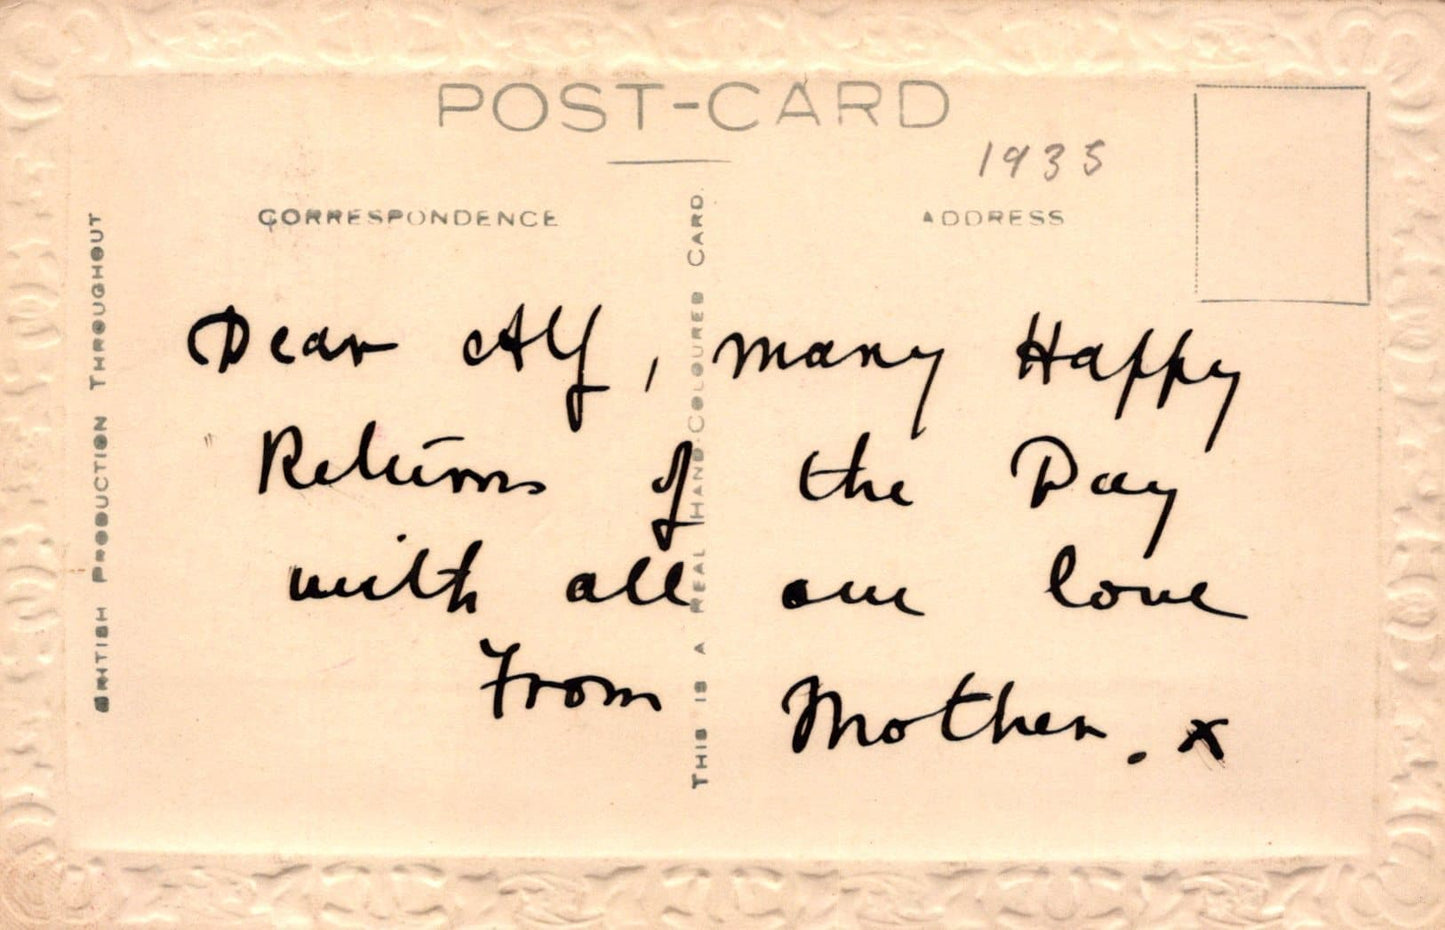 POST-CARD
1935
CORRESPONDENCE
ADDRESS
BRITISH PRODUCTION THROUGHOUT
THIS IS A REAL HAND-COLOURED CARD.
Dear Alf, many Happy
Returns of the Day
with all our love
From Mother. x